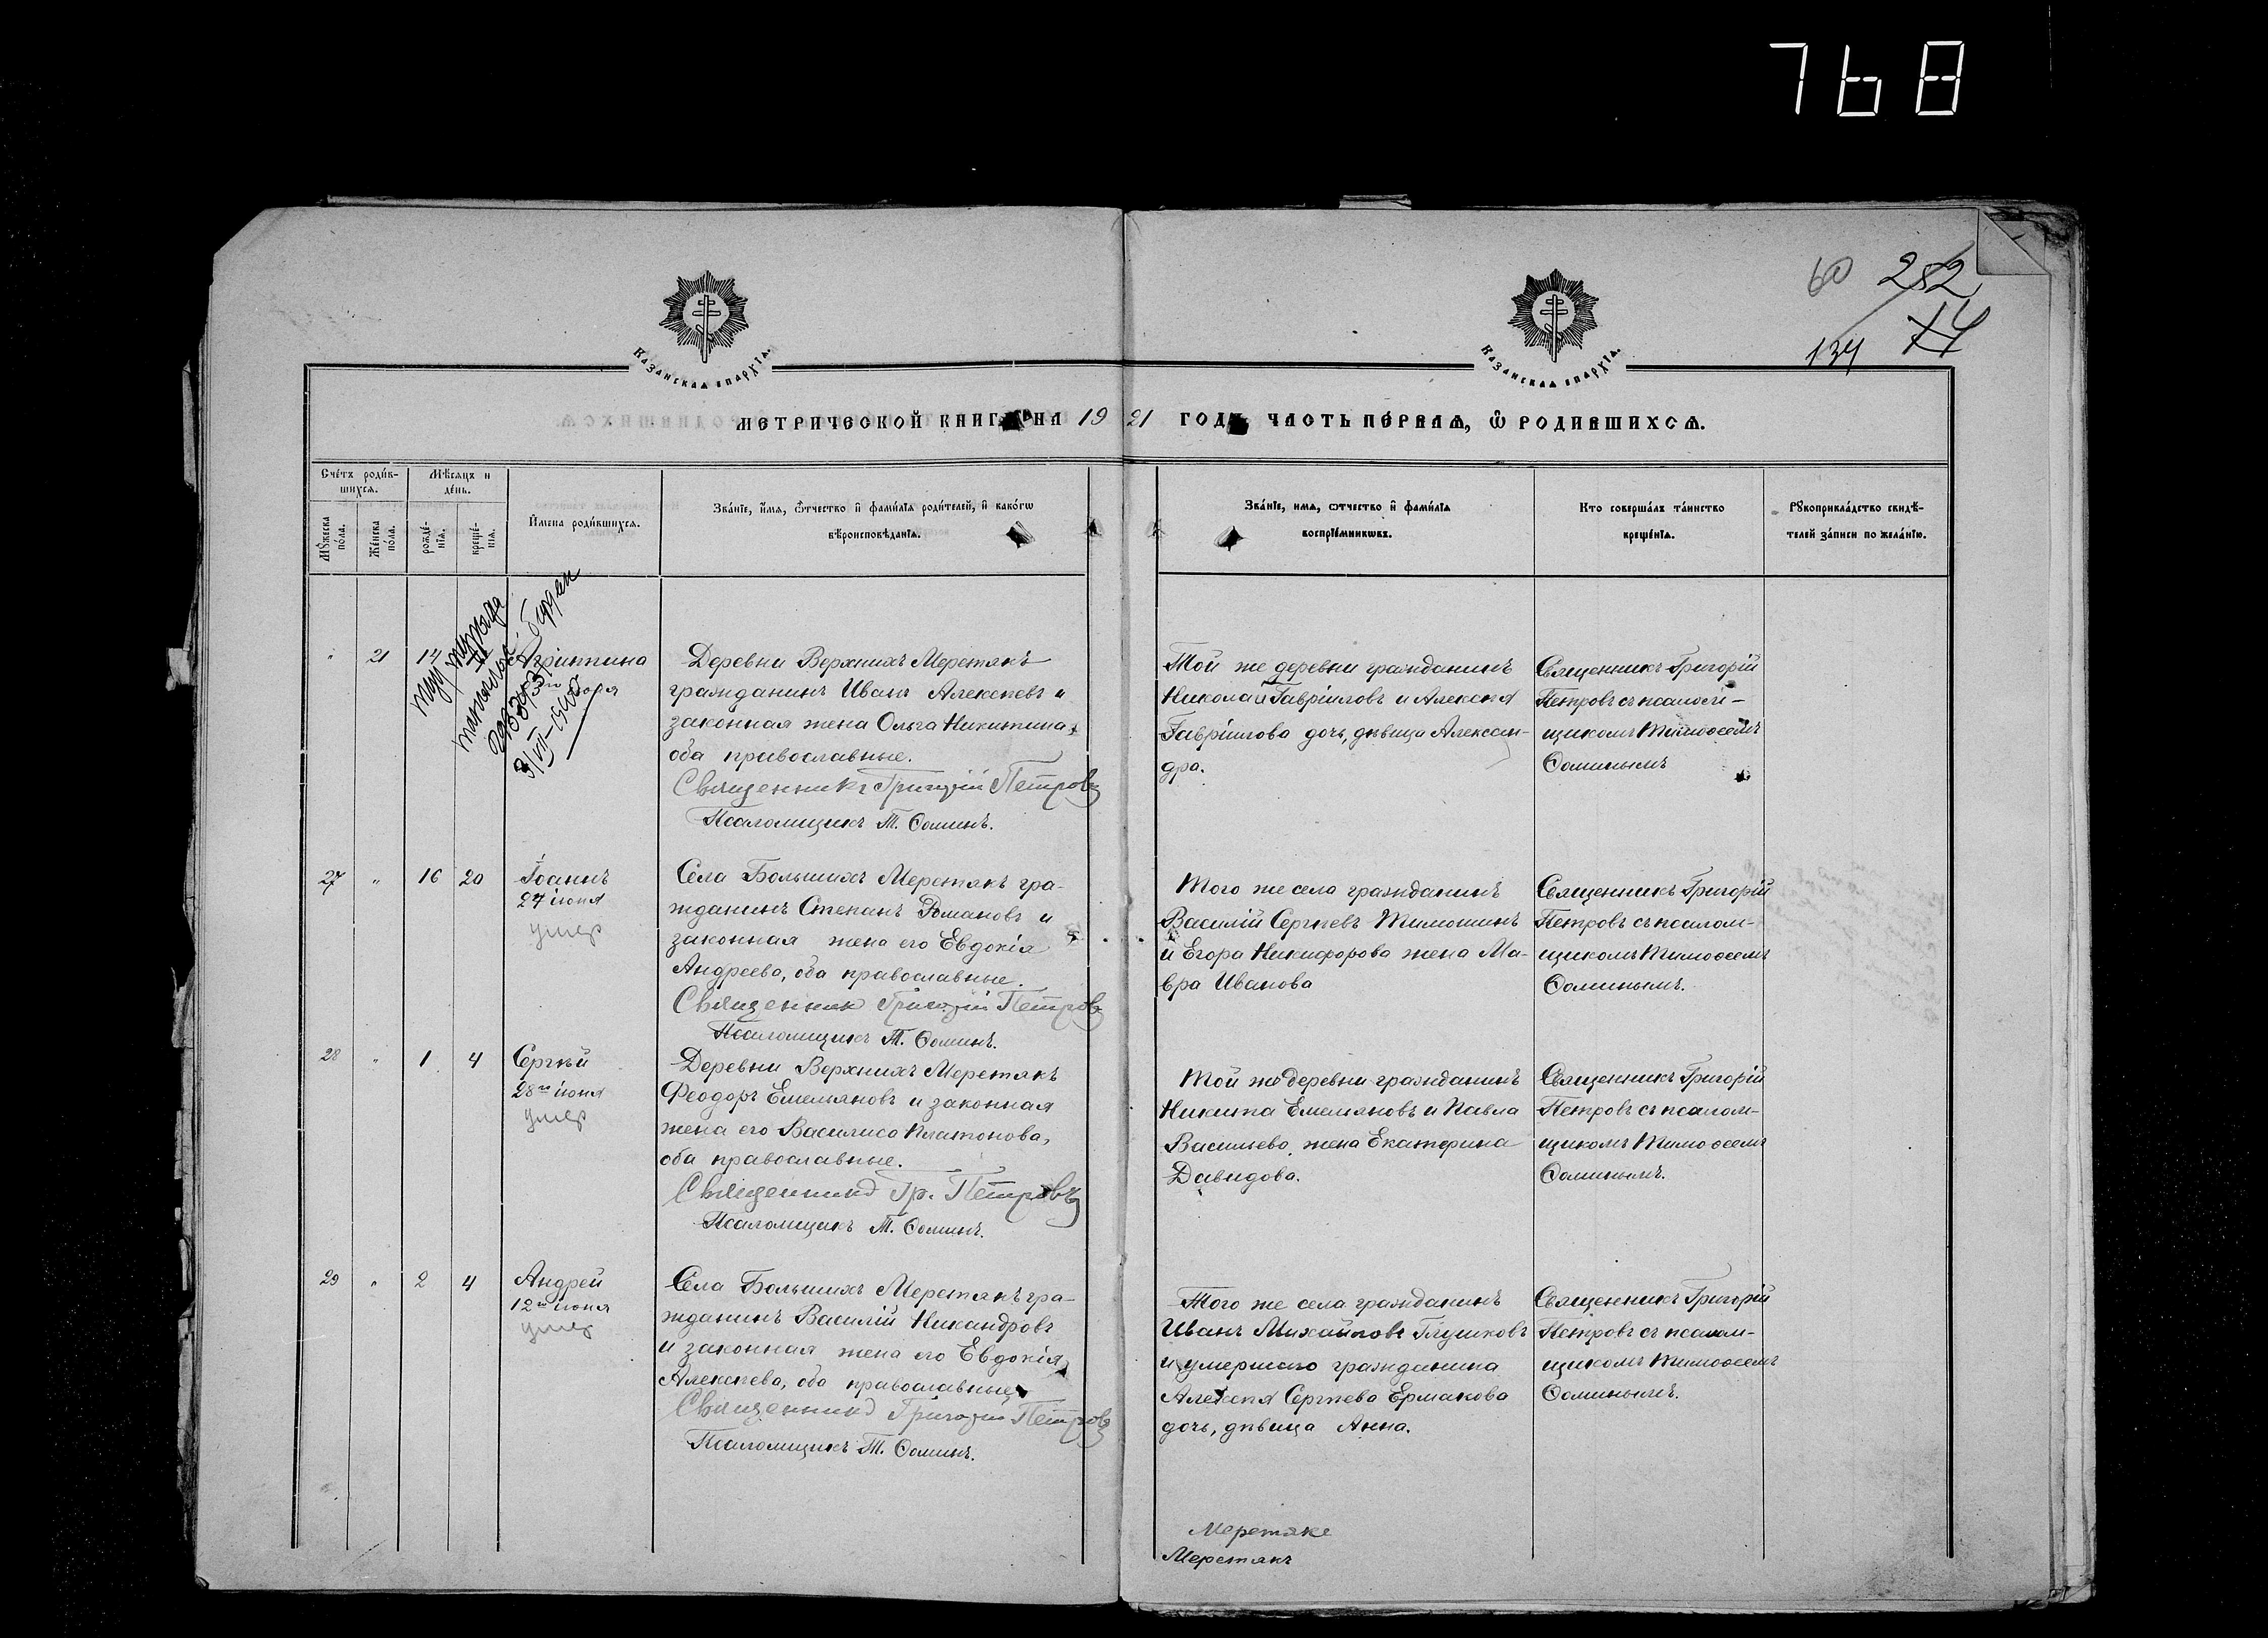 768
60 252
134 74
КАЗАНСКАЯ ЕПАРХІЯ.
КАЗАНСКАЯ ЕПАРХІЯ.
МЕТРИЧЕСКОЙ КНИГИ НА 1921 ГОДЪ ЧАСТЬ ПЕ́РВАЯ, Ѽ РОДИВШИХСЯ.
Сче́тъ роди́в-
шихся.
Мѣсяцъ и
де́нь.
Мꙋ́жеска
по́ла.
Же́нска
по́ла.
рожде́-
нїя.
креще́-
нїя.
И́мена роди́вшихся.
Зва́нїе, и́мя, ѻ́тчество и҆ фами́лїя роди́телей, и҆ како́гѡ
вѣроисповѣ́данїя.
Зва́нїе, имя, ѻтчество и҆ фами́лїя
воспрїе́мникѡвъ.
Кто соверша́лъ та́инство
креще́нїя.
Рꙋкоприкла́дство свидѣ́-
телей за́писи по жела́нїю.
" 21
Агриппина
Деревни Верхнихъ Меретякъ
гражданинъ Иванъ Алексѣевъ и
законная жена Ольга Никитина,
оба православные.
Священникъ Григорій Петровъ
Псаломщикъ Т. Ѳоминъ.
Той же деревни гражданинъ
Николай Гавріиловъ и Алексѣя
Гавріилова дочь, дѣвица Алексан-
дра.
Священникъ Григорій
Петровъ съ псалом-
щикомъ Тимоѳеемъ
Ѳоминымъ
27 " 16 20 Іоаннъ
24 іюня
умер
Села Большихъ Меретякъ гра-
жданинъ Степанъ Романовъ и
законная жена его Евдокія
Андреева, оба православные.
Священник Григорій Петровъ
Псаломщикъ Т. Ѳоминъ.
Того же села гражданинъ
Василій Сергѣевъ Тимошинъ
и Егора Никифорова жена Ма-
вра Иванова
Священникъ Григорій
Петровъ съ псалом-
щикомъ Тимоѳеемъ
Ѳоминымъ.
28 " 1 4 Сергѣй
28го іюня
умер
Деревни Верхнихъ Меретякъ
Феодоръ Емельяновъ и законная
жена его Василиса Платонова,
оба православные.
Священникъ Гр. Петровъ
Псаломщикъ Т. Ѳоминъ.
Той же деревни гражданинъ
Никита Емеляновъ и Павла
Васильева жена Екатерина
Давидова.
Священникъ Григорій
Петровъ съ псалом-
щикомъ Тимоѳеемъ
Ѳоминымъ.
29 " 2 4 Андрей
12го іюня
умер
Села Большихъ Меретякъ гра-
жданинъ Василій Никандровъ
и законная жена его Евдокія
Алексѣева, оба православные.
Священникъ Григорій Петровъ
Псаломщикъ Т. Ѳоминъ.
Того же села гражданинъ
Иванъ Михайловъ Глушковъ
и умершаго гражданина
Алексѣя Сергѣева Ермакова
дочь, дѣвица Анна.
Священникъ Григорій
Петровъ съ псалом-
щикомъ Тимоѳеемъ
Ѳоминымъ.
Меретяке
Меретякъ